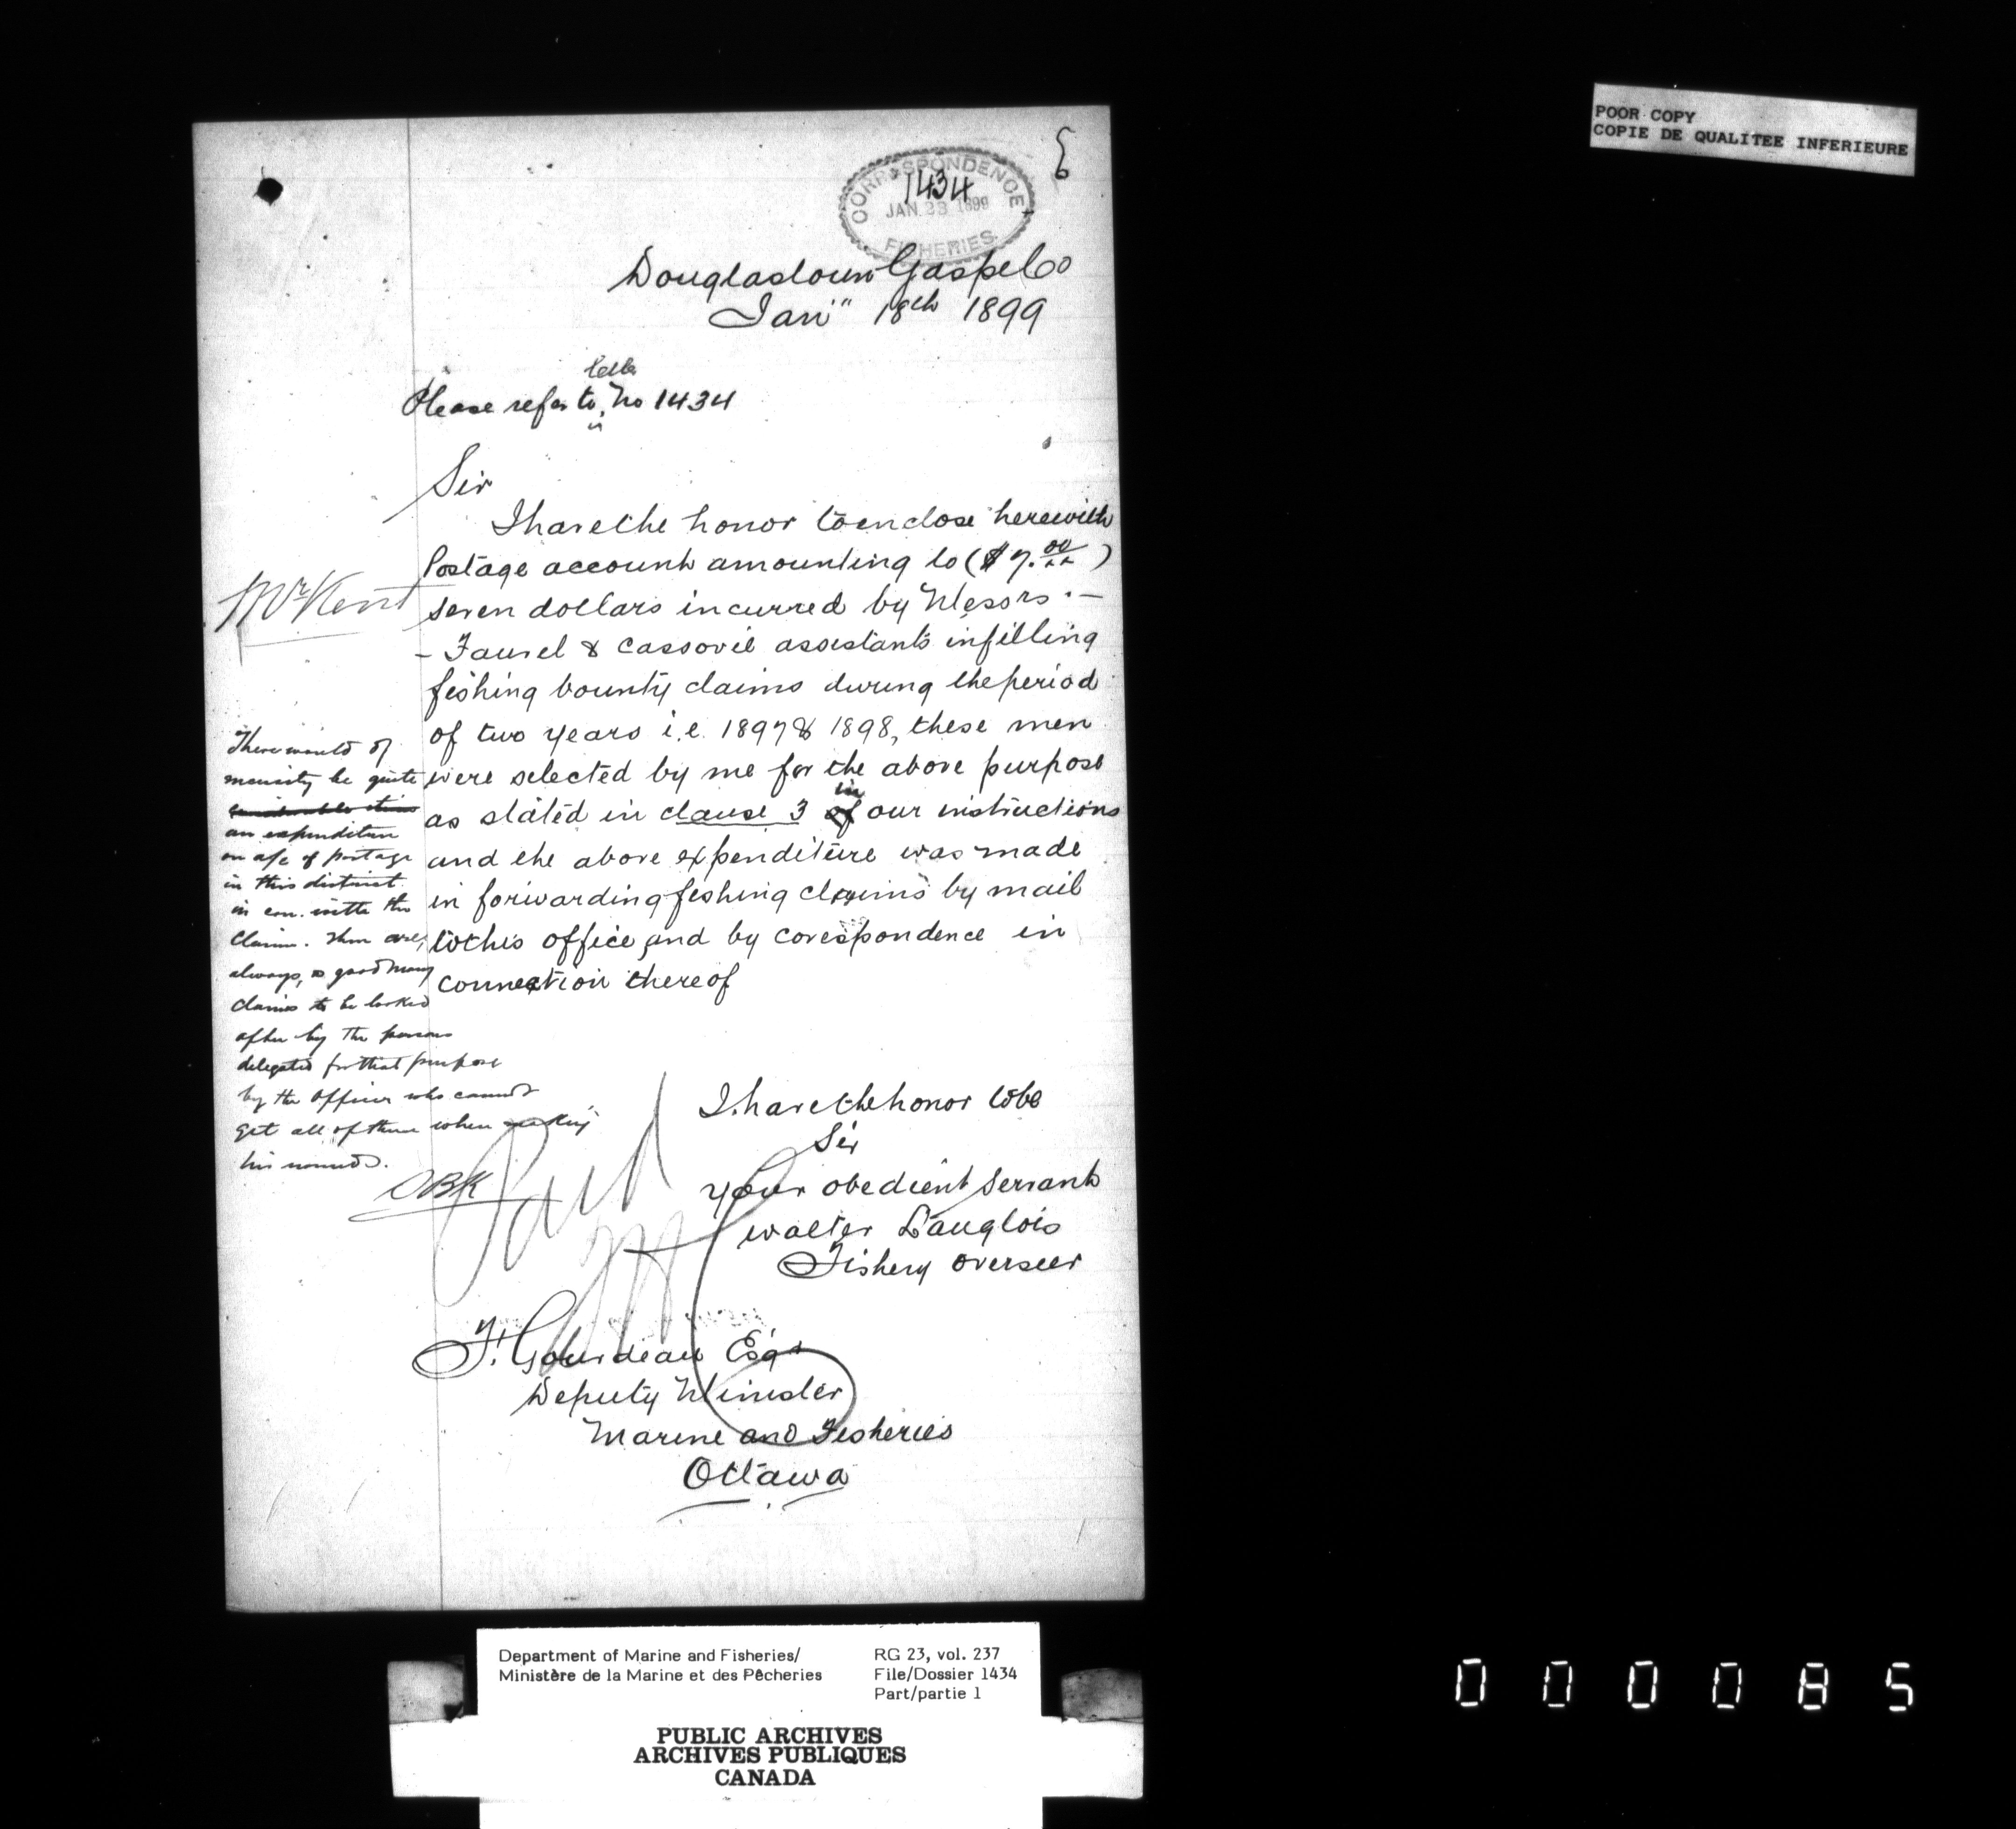 POOR COPY
COPIE DE QUALITEE INFERIEURE
6
CORRESPONDENCE
1434
JAN. 23 1899
FISHERIES
Douglastown Gaspe Co
Jan" 18th 1899
letter
Please refer to No 1434
Sir
I have the honor to enclose herewith
Postage account amounting to ($7.00)
seven dollars incurred by Messrs -
- & Cassovil assistants in filling
fishing bounty claims during the period
of two years i.e. 1897 & 1898, these men
were selected by me for the above purpose
as stated in clause 3 in our instructions
and the above expenditure was made
in forwarding fishing claims by mail
to this office, and by corespondence in
connection thereof
Mr Kent
There would of
necessity be quite
an expenditure
on a/c of postage
in this district
in con. with the
claims. There are,
always, a good many
claims to be looked
after by the persons
delegated for that purpose
by the officer who cannot
get all of them when making
his rounds.
I have the honor to be
Sir
your obedient servant
Walter Langlois
Fishery overseer
Paid
F. Gourdeau Esqr
Deputy Minister
Marine and Fisheries
Ottawa
Department of Marine and Fisheries/
Ministère de la Marine et des Pêcheries
RG 23, vol. 237
File/Dossier 1434
Part/partie 1
PUBLIC ARCHIVES
ARCHIVES PUBLIQUES
CANADA
000085